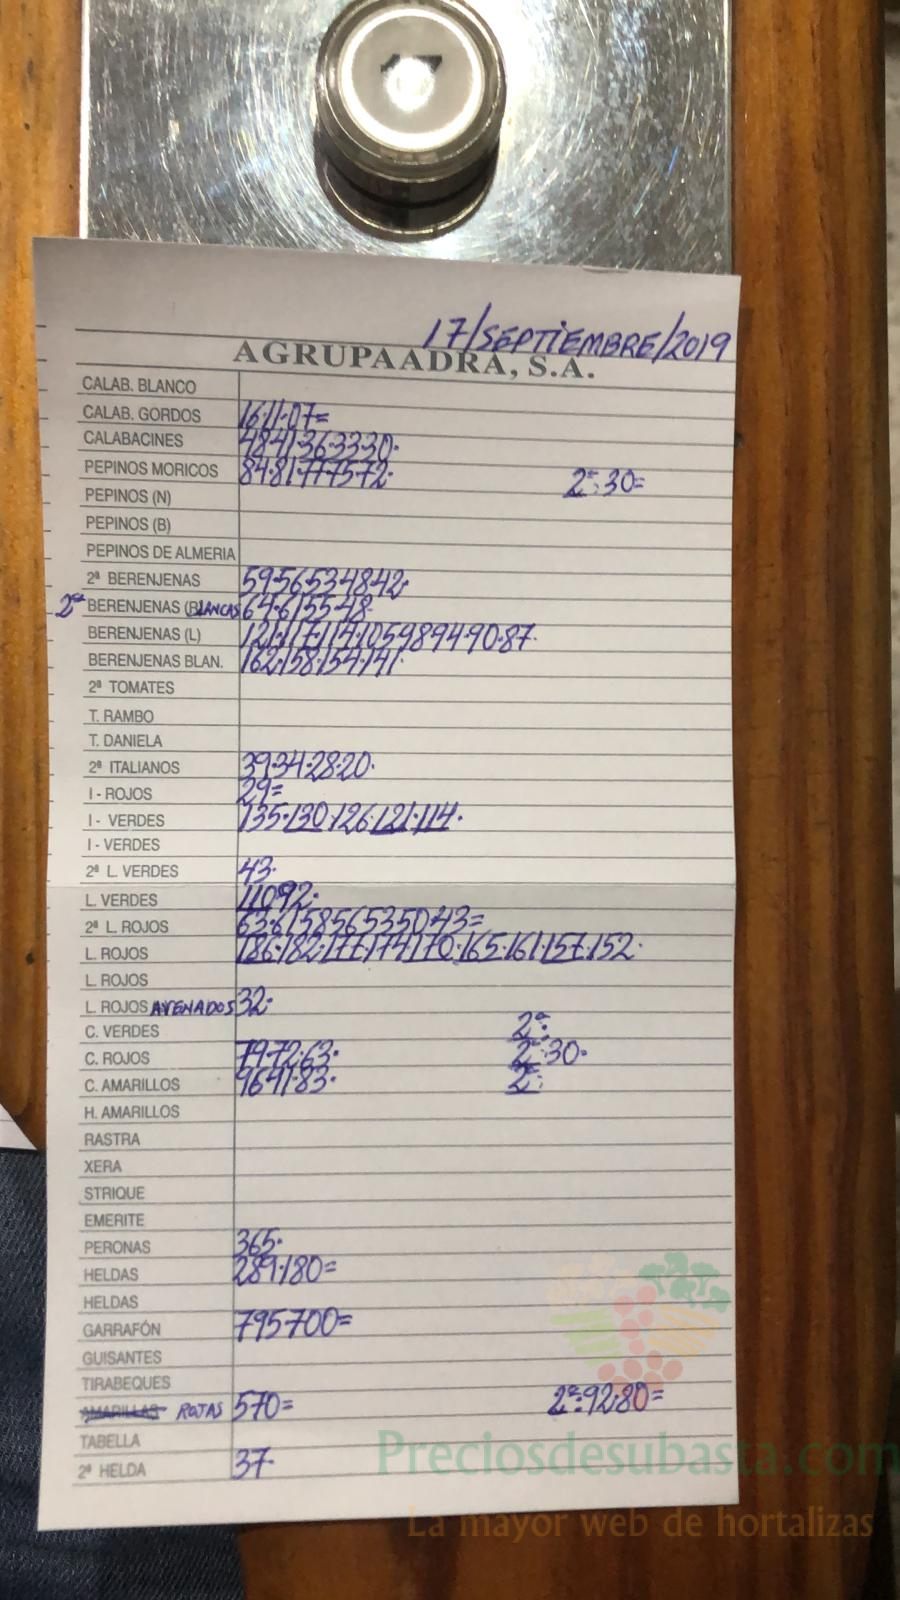 17/SEPTIEMBRE/2019
AGRUPAADRA, S.A.
CALAB. BLANCO
CALAB. GORDOS 16·11·07=
CALABACINES 48·41·36·33·30·
PEPINOS MORICOS 84·81·77·75·72· 2ª:30=
PEPINOS (N)
PEPINOS (B)
PEPINOS DE ALMERIA
2ª BERENJENAS 59·56·53·48·42·
2ª BERENJENAS (BLANCAS 64·61·55·48·
BERENJENAS (L) 121·117·114·105·98·94·90·87·
BERENJENAS BLAN. 162·158·154·141·
2ª TOMATES
T. RAMBO
T. DANIELA
2ª ITALIANOS 39·34·28·20·
I - ROJOS 29=
I - VERDES 135·130·126·121·114·
I - VERDES
2ª L. VERDES 43·
L. VERDES 110·92·
2ª L. ROJOS 63·61·58·56·53·50·43=
L. ROJOS 186·182·177·174·170·165·161·157·152·
L. ROJOS
L. ROJOS AVENADOS 32·
C. VERDES 2ª:
C. ROJOS 79·72·63· 2ª:30·
C. AMARILLOS 96·91·83· 2ª:
H. AMARILLOS
RASTRA
XERA
STRIQUE
EMERITE
PERONAS 365·
HELDAS 289·180=
HELDAS
GARRAFÓN 795·700=
GUISANTES
TIRABEQUES
AMARILLAS ROJAS 570= 2ª:92·80=
TABELLA
2ª HELDA 37·
Preciosdesubasta.com
La mayor web de hortalizas